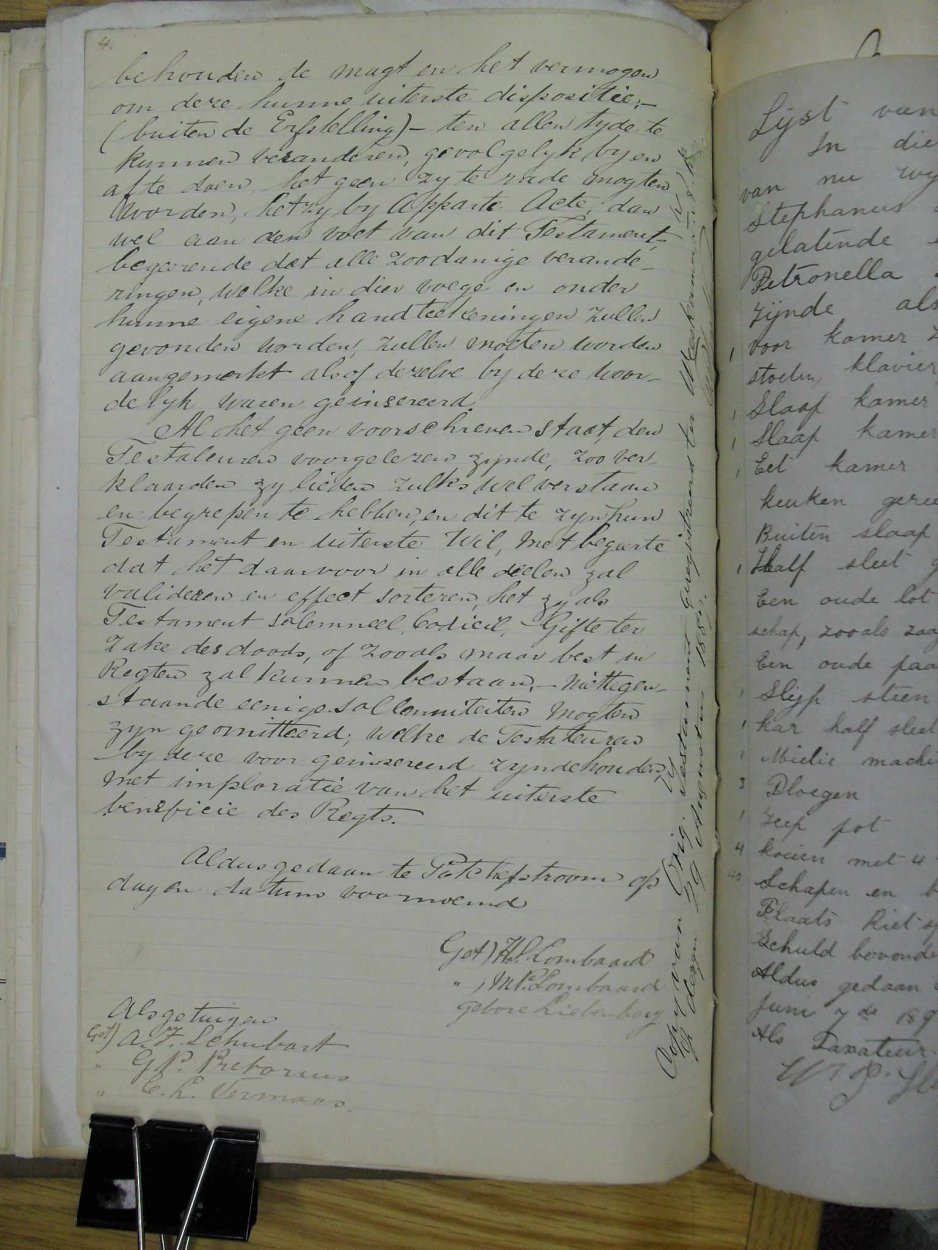 4.
behouden de magt en het vermogen
om deze hunne uiterste dispositie,-
(buiten de Erfstelling) - ten allen tyde te
kunnen veranderen, gevolgelyk by en
af te doen het geen zy te rade mogten
worden, hetzy by Apparte Acte dan
wel aan den voet van dit Testament,-
begeerende dat alle zoodanige verande-
ringen, welke in dier voege en onder
hunne eigene handteekeningen zullen
gevonden worden, zullen moeten worden
aangemerkt alsof dezelve by deze woor-
delyk waren geinsereerd.
Al het geen voorschreven staat, den
Testateuren voorgelezen zynde, zoo ver-
klaarden zy lieden zulks wel verstaan
en begrepen te hebben, en dit te zyn hun
Testament en uiterste Wil, met begeerte
dat het daarvoor in alle deelen zal
valideren en effect sorteren, het zy als
Testament solemneel, Codicil, Gifte ter
zake des doods, of zooals maar best in
Regten zal kunnen bestaan, - niettegen-
staande eenige sollemniteiten mogten
zyn geomitteerd; welke de Testateuren
by deze voor geinsereerd zynde houden,
met imploratie van het uiterste
beneficie des Regts.
Aldus gedaan te Potchefstroom op
dag en datum voornoemd
Get) H. Lombaard
" ) M. P. Lombaard
gebore Liebenberg
Als getuigen
Get) A. F. Schubart
" G. P. Pretorius
" C. L. Vermaas.
Copy van Orig. Testament geregistreerd ter Weeskamer
Augustus
Lijst van
In die
van nu wy
Stephanus
gelatende
Petronella
zijnde als
1 voor kamer
stoelen, klavier
1 Slaap kamer
1 Slaap kamer
1 Eet kamer
keuken geree
Buiten slaap
1 Half sleet
Een oude lot
schap, zooals zaag
Een oude paa
1 Slyp steen
1 kar half sleet
1 Mielie machi
3 Ploegen
1 Zeep pot
4 koeien met 4
40 Schapen en b
Plaats Riet
Schuld bovende
Aldus gedaan
Juni 7de 189
Als Taxateur